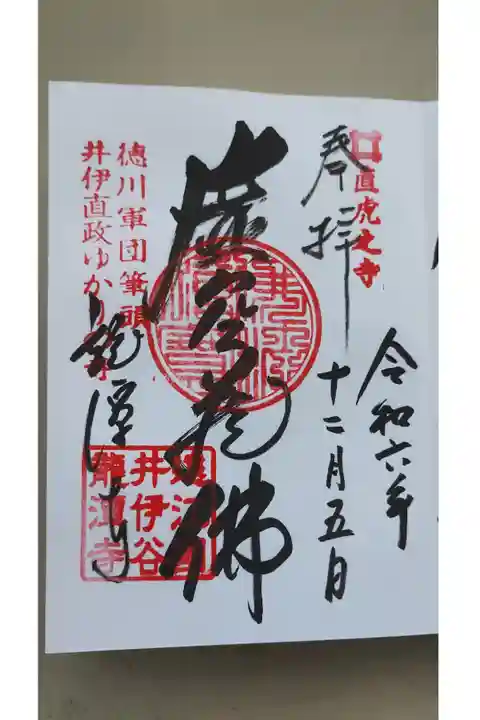 直虎之寺
奉拝
令和六年
十二月五日
虚空蔵佛
徳川軍団筆頭
井伊直政ゆかり
龍潭寺
井伊谷
龍潭寺